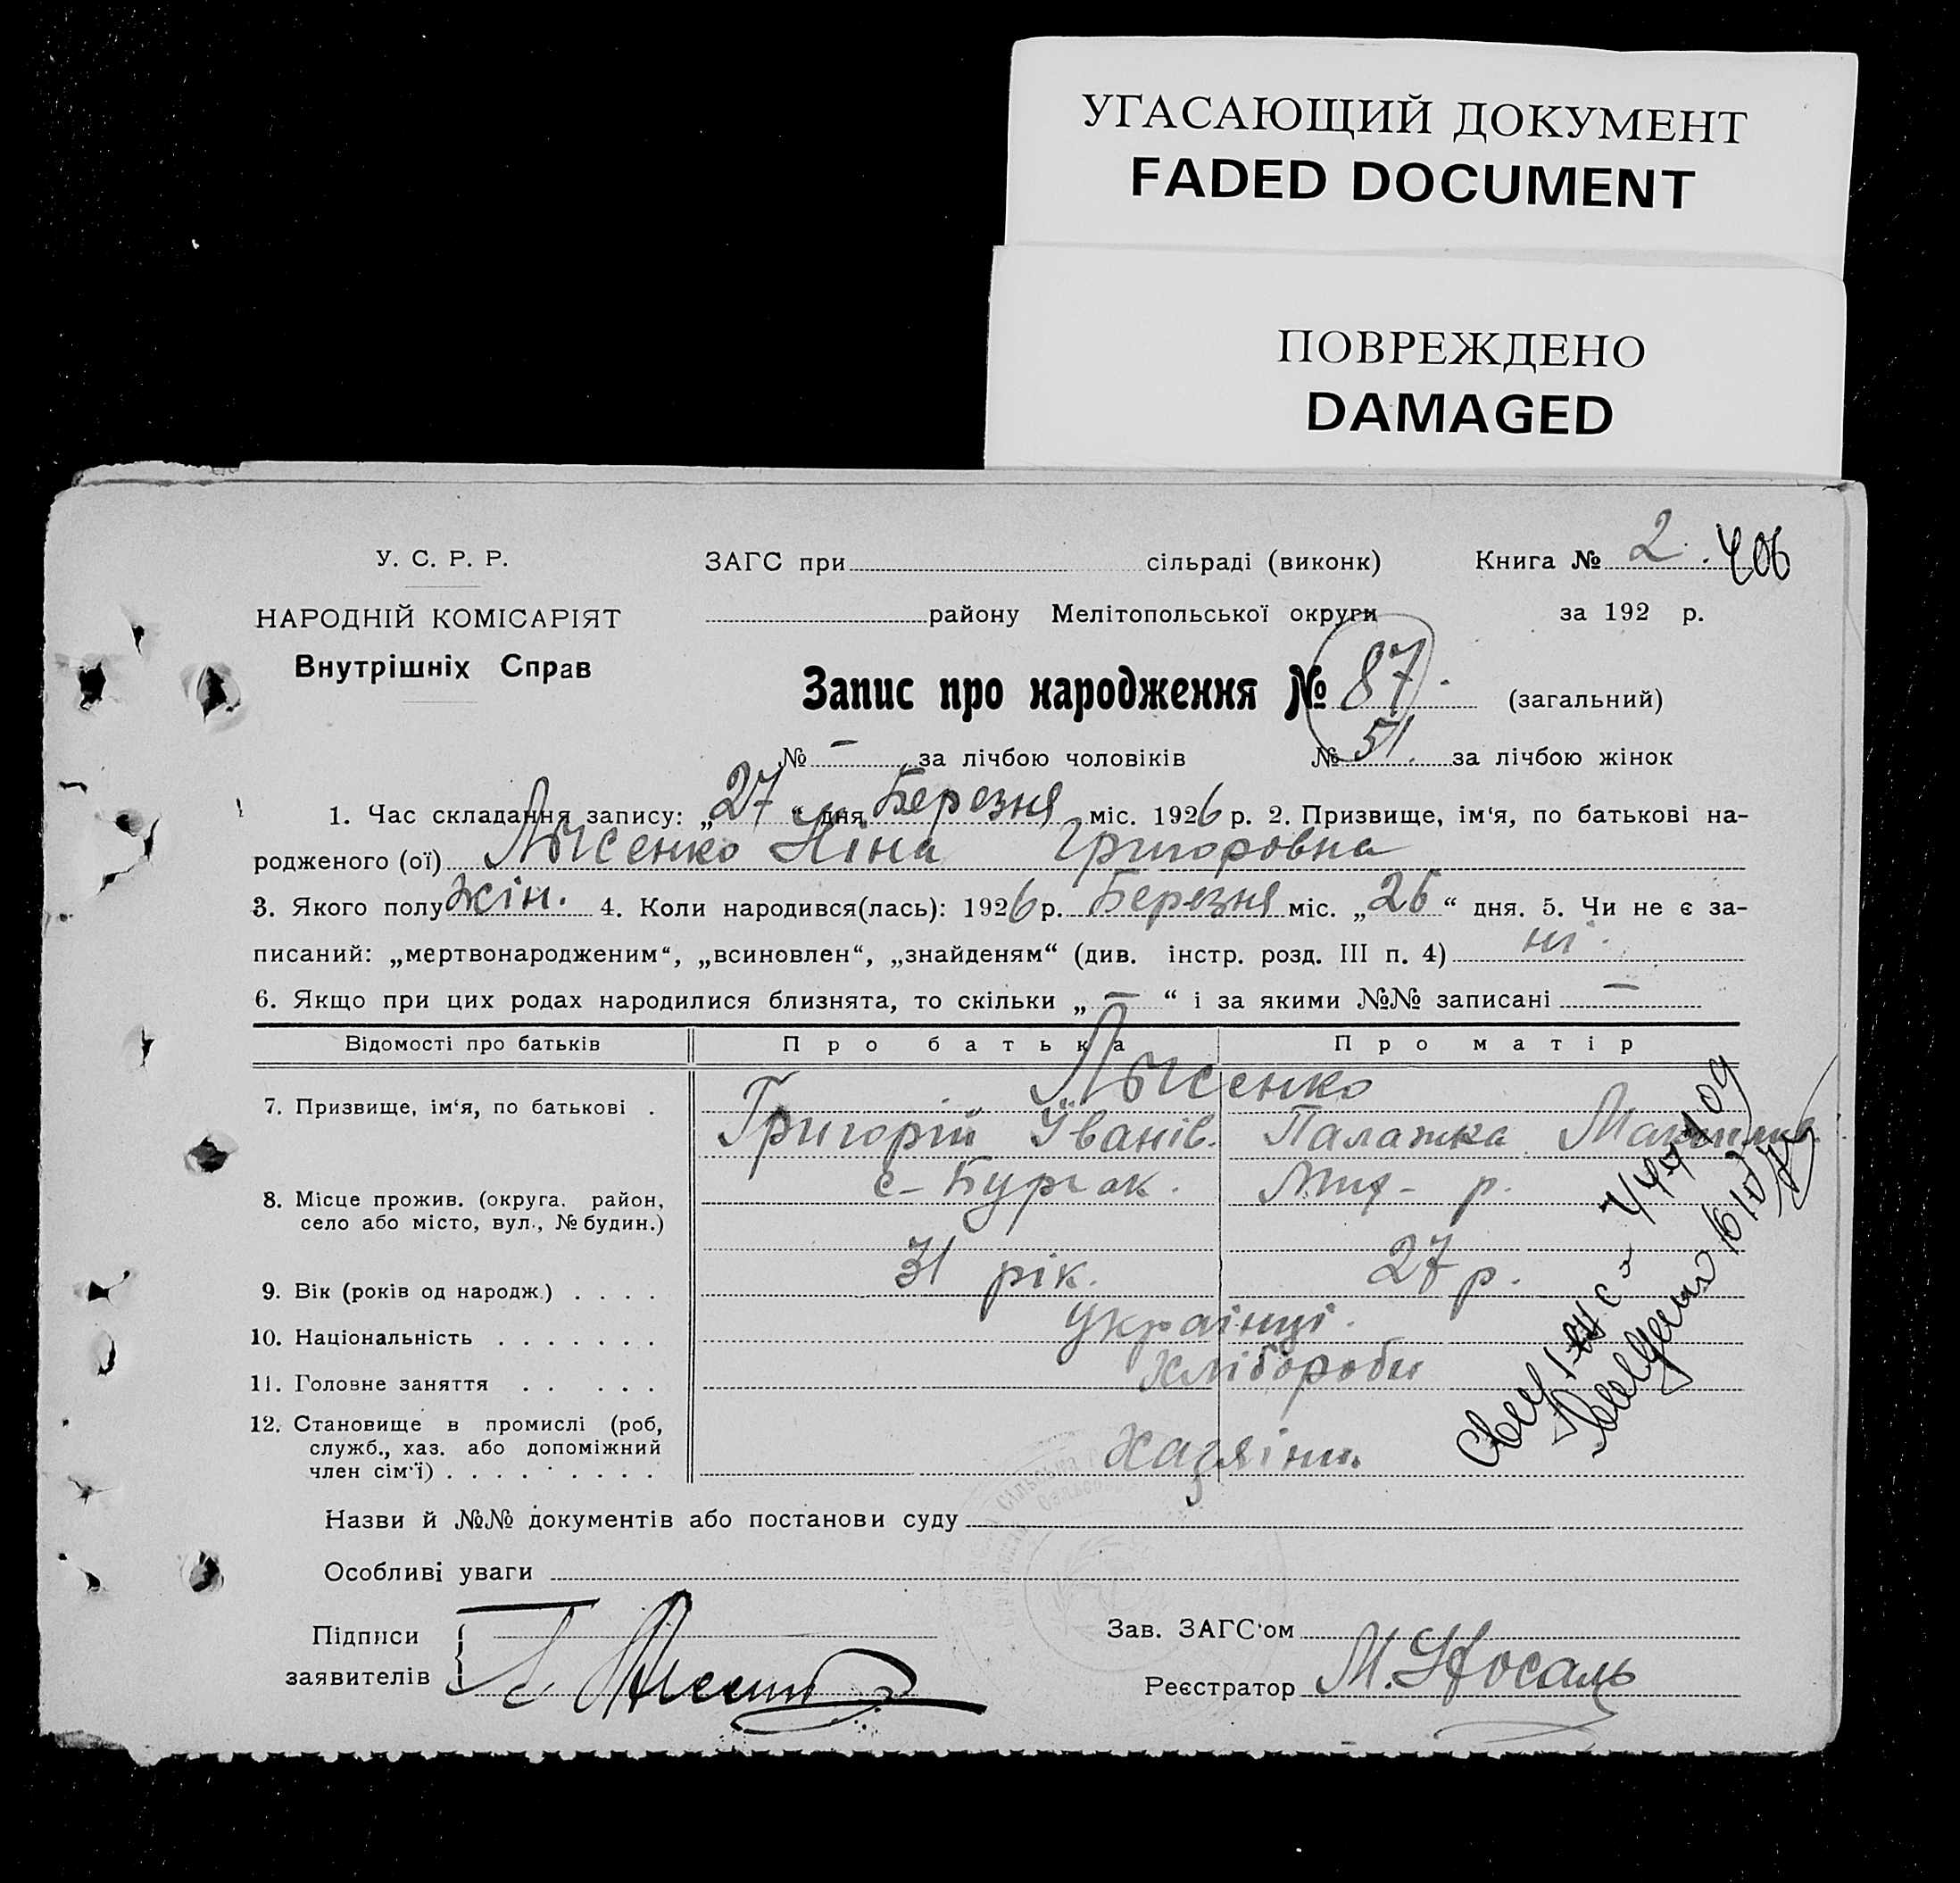 УГАСАЮЩИЙ ДОКУМЕНТ
FADED DOCUMENT
ПОВРЕЖДЕНО
DAMAGED
У. С. Р. Р.
НАРОДНІЙ КОМІСАРІЯТ
Внутрішніх Справ
ЗАГС при сільраді (виконк)
Книга № 2. 406
району Мелітопольської округи
за 192 р.
Запис про народження № 87. (загальний)
№ – за лічбою чоловіків № 51. за лічбою жінок
1. Час складання запису: „27“ дня Березня міс. 1926 р. 2. Призвище, ім‘я, по батькові на-
родженого (ої) Лысенко Ніна Григоровна
3. Якого полу жін. 4. Коли народився(лась): 1926 р. Березня міс. „26“ дня. 5. Чи не є за-
писаний: „мертвонародженим“, „всиновлен“, „знайденям“ (див. інстр. розд. III п. 4) ні.
6. Якщо при цих родах народилися близнята, то скільки „ – “ і за якими №№ записані –
Відомості про батьків Про батька Про матір
Лысенко
7. Призвище, ім‘я, по батькові .
Григорій Іванів. Палажка
8. Місце прожив. (округа, район,
село або місто, вул., № будин.)
с-Бургак. р.
9. Вік (років од народж.) . . . .
31 рік. 27 р.
10. Національність . . . . . . .
українці.
11. Головне заняття . . . . .
хлібороби
12. Становище в промислі (роб,
служб., хаз. або допоміжний
член сім‘ї) . . . . . . . . .
хазяіни.
Назви й №№ документів або постанови суду
Особливі уваги
Підписи
заявителів
Зав. ЗАГС‘ом
Реєстратор М. Носаль